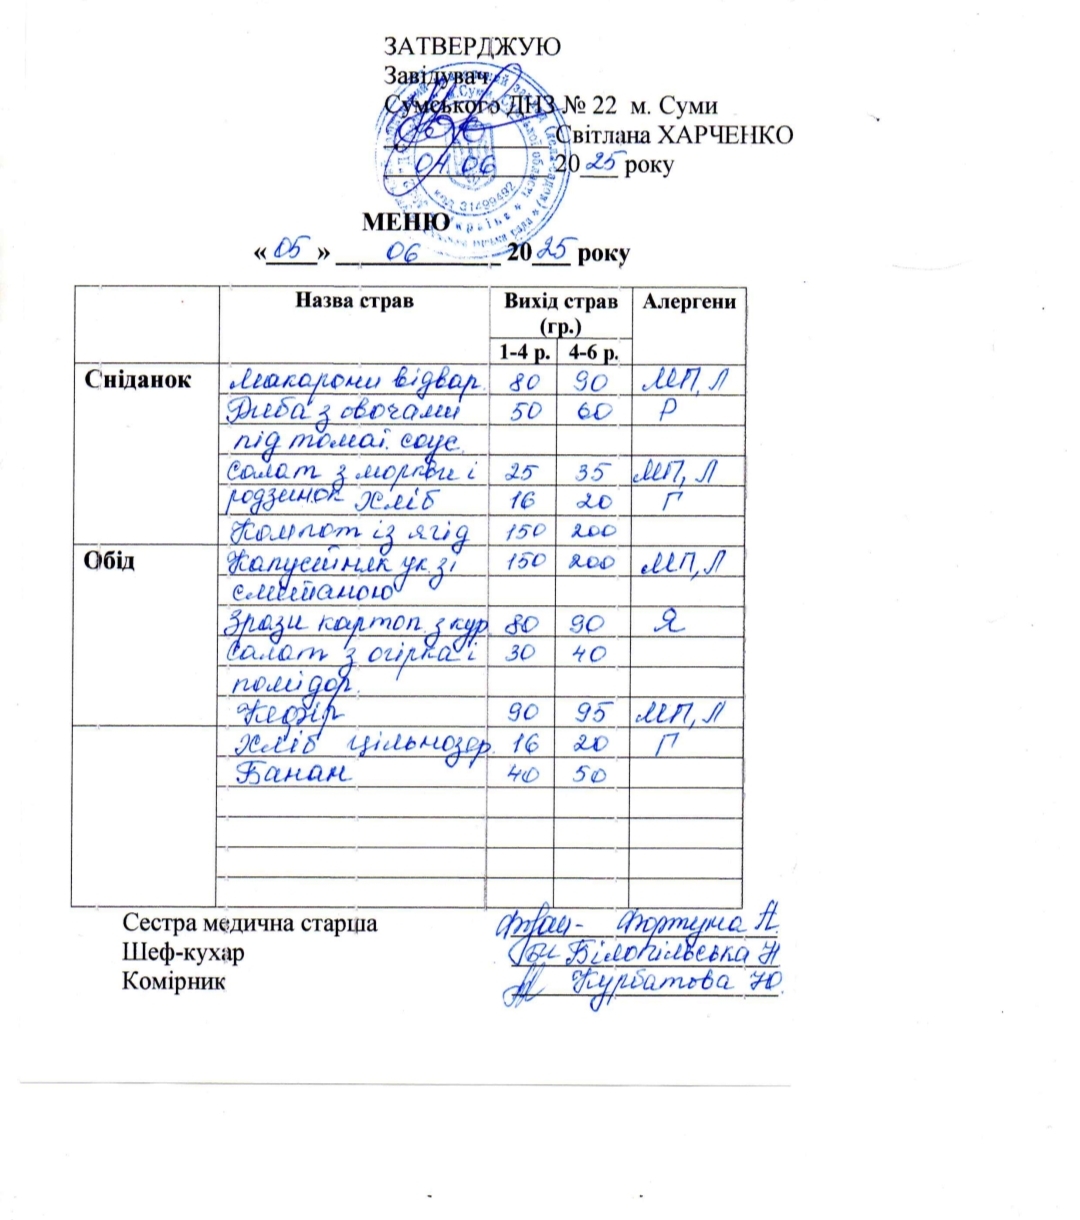 ЗАТВЕРДЖУЮ
Завідувач
Сумського ДНЗ № 22 м. Суми
Світлана ХАРЧЕНКО
04.06 2025 року
код 31499492
МЕНЮ
«05» 06 2025 року
Назва страв Вихід страв (гр.) Алергени
1-4 р. 4-6 р.
Сніданок Макарони відвар. 80 90 МП, Л
Риба з овочами 50 60 Р
під томат. соус.
Салат з моркви і 25 35 МП, Л
родзинок Хліб 16 20 Г
Компот із ягід 150 200
Обід Капусняк ук. зі 150 200 МП, Л
сметаною
Зрази картоп. з кур. 80 90 Я
Салат з огірка і 30 40
помідор.
Кефір 90 95 МП, Л
Хліб цільнозер. 16 20 Г
Банан 40 50
Сестра медична старша Фортуна А
Шеф-кухар Білопільська Н
Комірник Курбатова Ю.